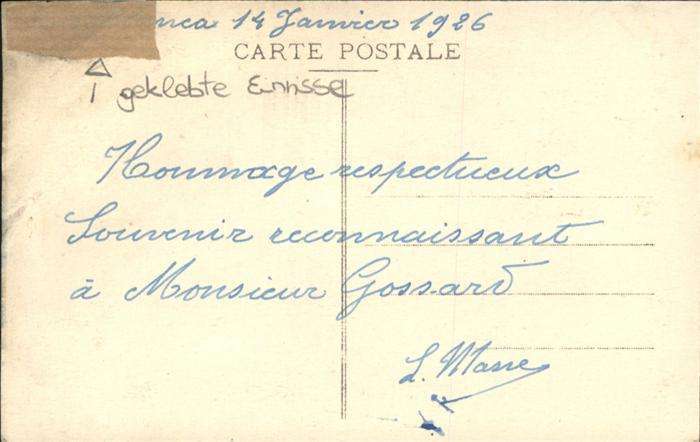 nca 14 Janvier 1926
CARTE POSTALE
geklebte Einrisse
Hommage respectueux
Souvenir reconnaissant
à Monsieur Gossard
L. Masse